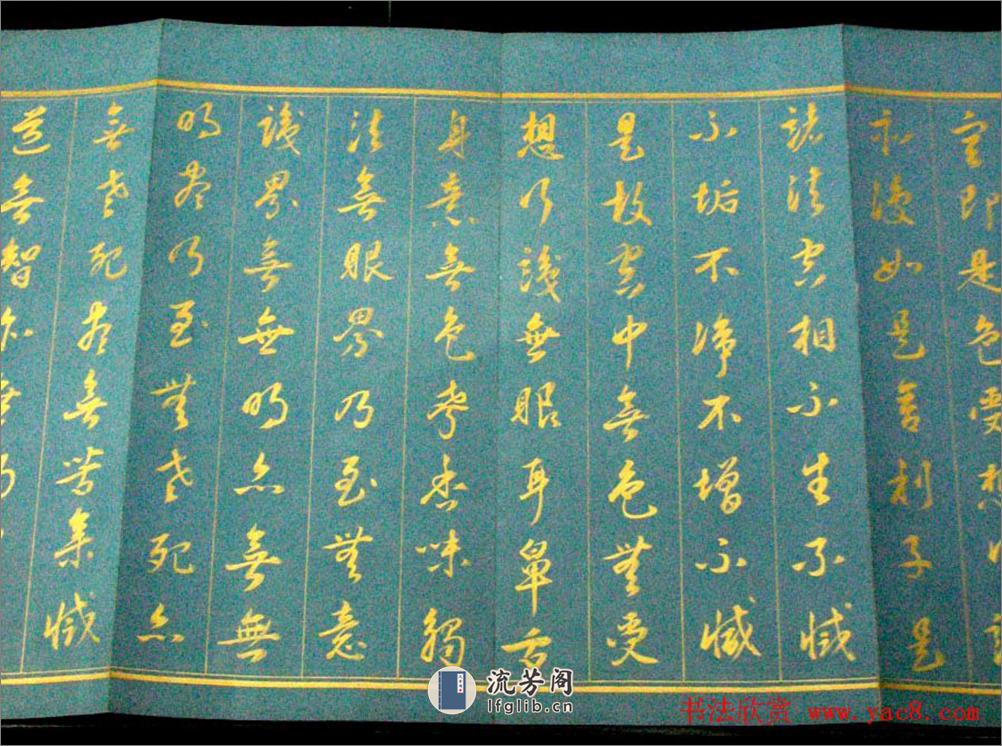 空即是色受想行識
亦復如是舍利子是
諸法空相不生不滅
不垢不淨不增不減
是故空中無色無受
想行識無眼耳鼻舌
身意無色聲香味觸
法無眼界乃至無意
識界無無明亦無無
明盡乃至無老死亦
無老死盡無苦集滅
道無智亦無
流芳阁
lfglib.cn
书法欣赏 www.yac8.com